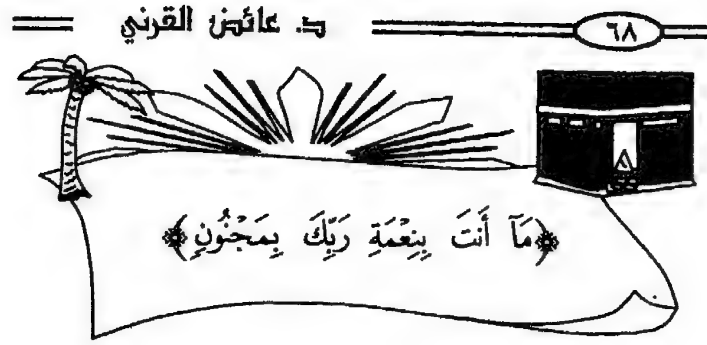 د. عائض القرني ٦٨
﴿مَآ أَنتَ بِنِعْمَةِ رَبِّكَ بِمَجْنُونٍ﴾